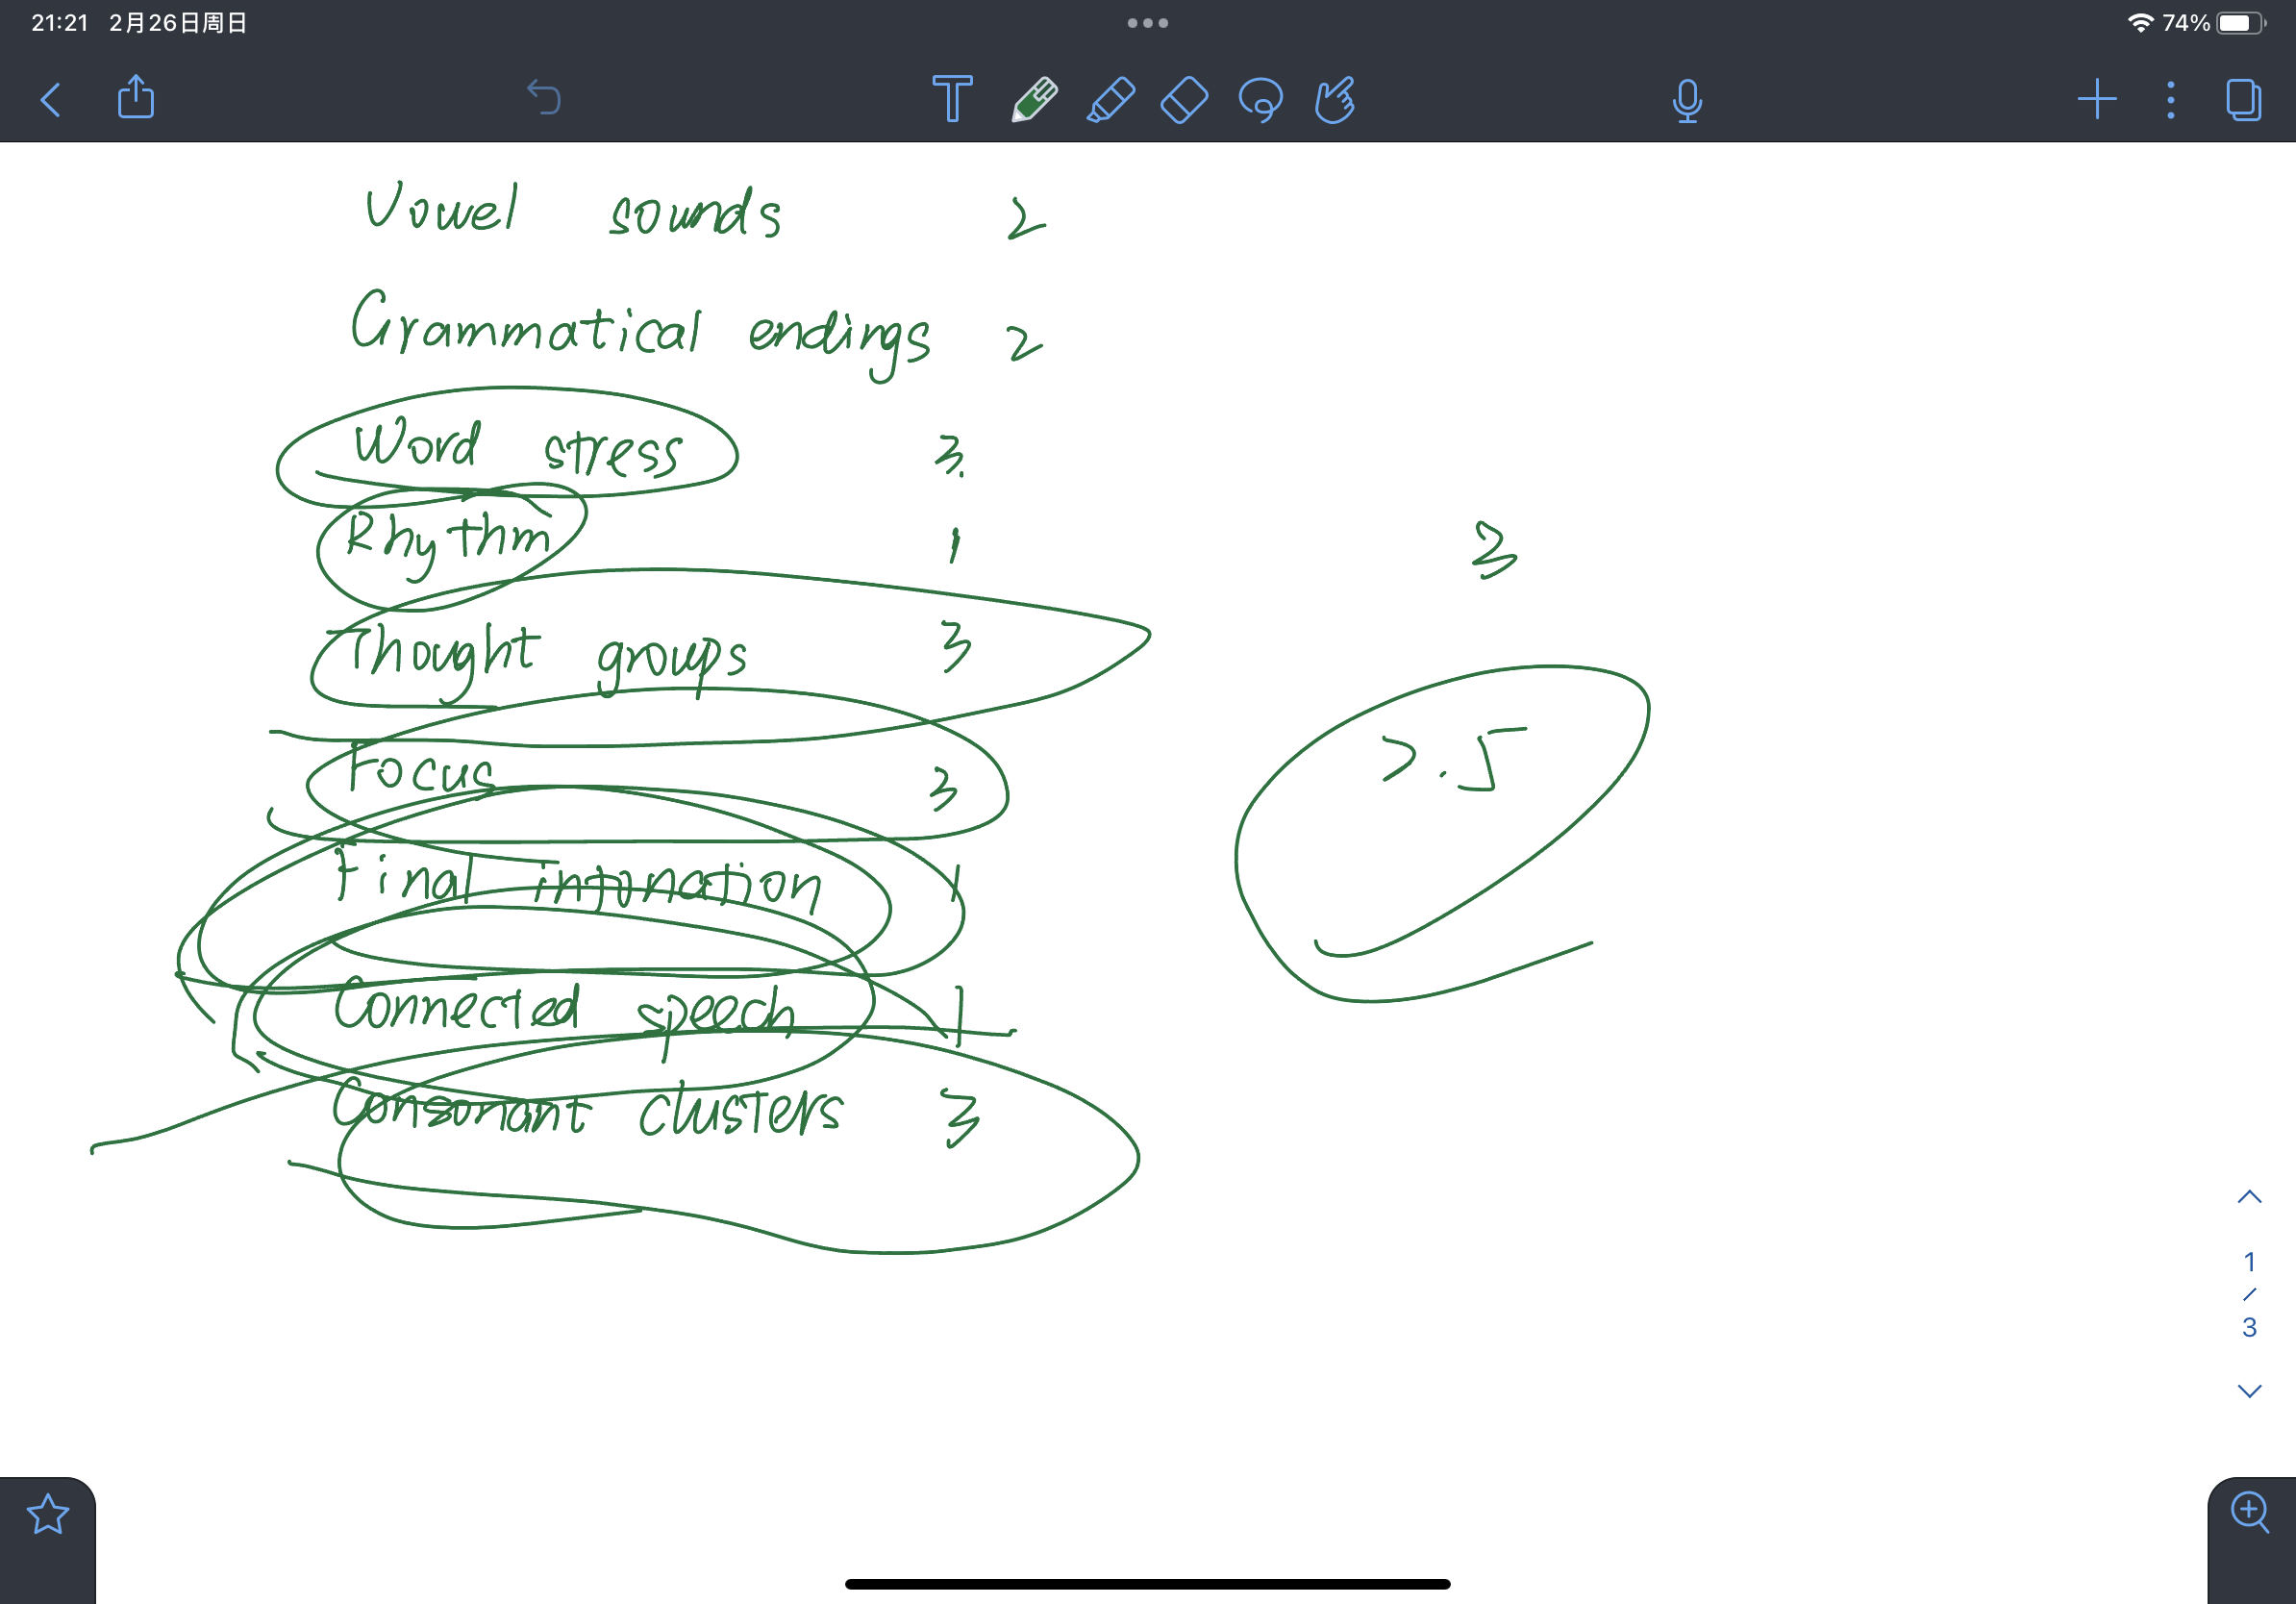 21:21 2月26日周日 74%
Vowel sounds 2
Grammatical endings 2
Word stress 3
Rhythm 1
Thought groups 3
Focus 3
Final intonation 1
Connected speech 1
Consonant clusters 3
3
7.5
1
/
3